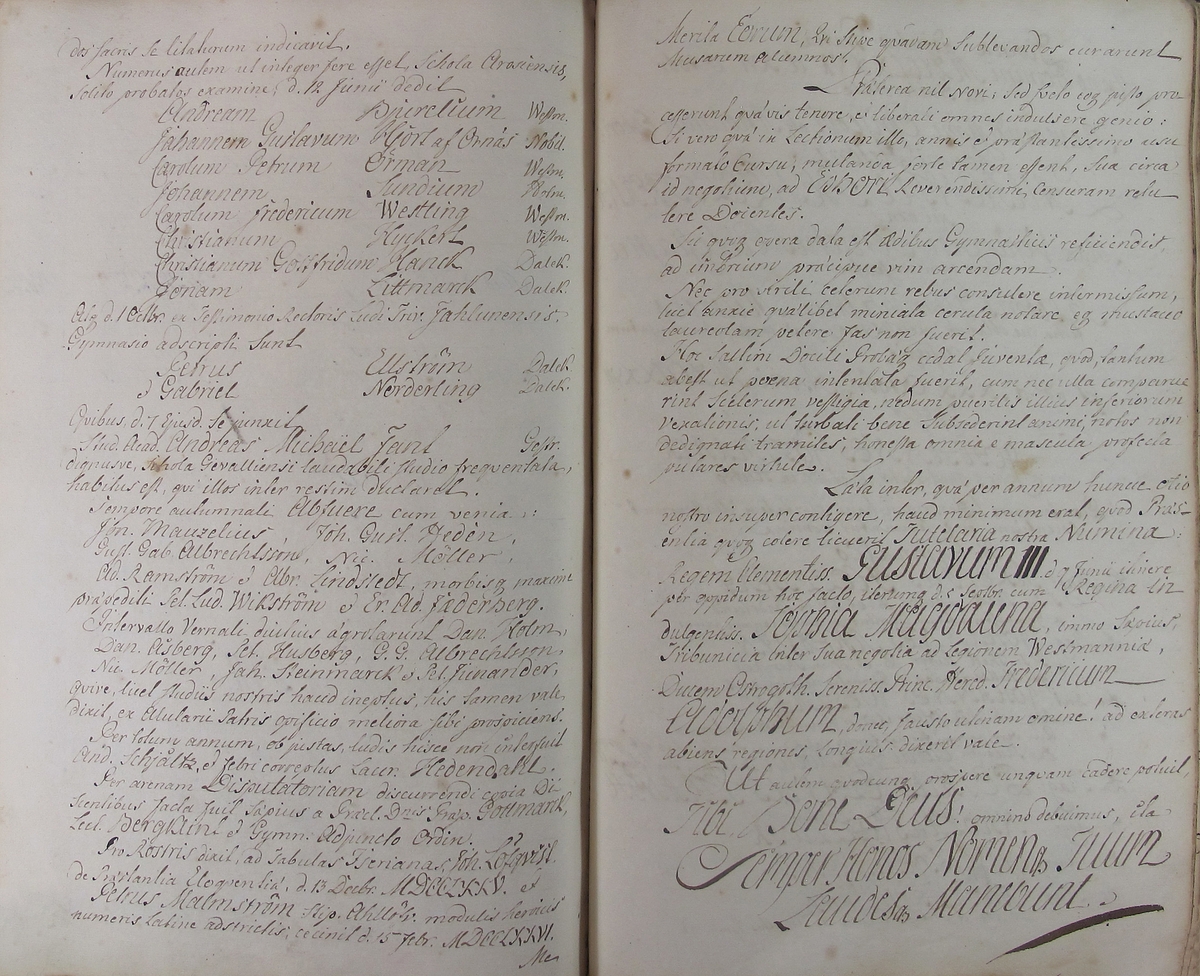 dos sacris se litaturum indicavit.
Numerus autem ut integer fere esset, Schola Arosiensis,
solito probatos examine, d. 12 Junii dedit
Andream Burelium Westm.
Johannem Gustavum Hjort af Ornäs Nobil.
Carolum Petrum Örman Westm.
Johannem Sundium Holm.
Carolum Fredericum Westling Westm.
Christianum Hyckert Westm.
Christianum Gottfridum Hanck Dalek.
Göriam Littmarck Dalek.
Atq d. 1 Octbr. ex Testimonio Rectoris Ludi Triv. Fahlunensis.
Gymnasio adscripti sunt
Petrus Ellström Dalek
& Gabriel Norderling Dalek.
Qvibus, d. 7 Ejusd. se junxit
Stud. Acad. Andreas Michaël Fant Gestr.
dignusve, Schola Gevaliensi laudabili studio freqventata,
habitus est, qvi illos inter restim ductaret.
Tempore autumnali Abfuere cum venia:
Jon. Mauzelius, Joh. Gust. Hedén,
Gust. Gab. Albrechtsson, Nic. Möller,
Ad. Ramström & Abr. Lindstedt, morbisq maxime
præpediti Sel. Lud. Wikström & Er. Ad. Jäderberg.
Intervallo Vernali diutius ægritarunt Dan. Holm,
Dan. Asberg, Sel. Husberg, G. G. Albrechtsson,
Nic. Möller, Joh. Steinmarck & Sel. Junander,
qvive, licet studiis nostris haud ineptus, his tamen vale
dixit, ex Alutarii Patris opificio meliora sibi prospiciens.
Per totum annum, ob justas, ludis hisce non interfuit
And. Schjältz, & febri correptus Laur. Hedendahl.
Per arenam Disputatoriam discurrendi copia Di-
scentibus facta fuit sæpius a Præcl. Dnis Præp. Gottmarck,
Lect. Bergklint & Gymn. Adjuncto Ordin.
Pro Rostris dixit, ad Tabulas Iserianas, Joh. Löfqvist.
de Præstantia Eloqventiæ, d. 13 Decbr. MDCCLXXV. et
Petrus Malmström Stip. modulis heroicis
numeris, Latine adstrictis, cecinit d. 15 Febr. MDCCLXXVI.
Me-
Merita Eorum, Qui Stipe qvadam Sublevandos curarunt
Musarum alumnos.
Præterea nil Novi; Sed solo eoq justo pro-
cesserunt qvævis tenore, & liberali omnes indulsere genio:
Si vero qvæ in Lectionum ille, annis & præstantissimo usu
formato Cursu, mutanda forte tamen essent, Sua circa
id negotium, ad EPHORI Reverendissimi Censuram retu-
lere Docentes.
Sic qvoq opera data est Ædibus Gymnasticis reficiendis,
ad imbrium præcipue vim arcendam.
Nec pro virili ceterum rebus consulere intermissum,
licet anxie qvælibet miniata cerula notare, eq mustaceo
laureolam petere fas non fuerit.
Hoc saltim Docili Probæq cedat Juventæ, qvod, tantum
abest ut poena intentata fuerit, cum nec ulla comparue-
rint Scelerum vestigia, nedum puerilis illius inferiorum
vexationis, ut turbati bene Subsederint animi, notos non
dedignati tramites, honesta omnia e mascula profecta
putares virtute.
Læta inter, qvæ per annum huncce otio
nostro insuper contigere, haud minimum erat, qvod Præs-
entia qvoq colere licuerit Tutelaria nostra Numina:
Regem Clementiss. GUSTAVUM III. d. 7 Junii itinere
per oppidum hoc facto, iterumq d. 5 Septbr. cum Regina In-
dulgentiss. SOPHIA MAGDALENA, immo Sæpius,
Tribunicia inter Sua negotia ad Legionem Westmanniæ,
Ducem Ostrogoth. Sereniss. Princ. Hered. FREDERICUM
ADOLPHUM, donec, fausto utinam omine! ad exteras
abiens regiones, Longius dixerit vale.
Ut autem qvodcunq prospere unqvam cadere potuit,
Tibi, Bone DEUS! omnino debuimus, ita
Semper Honos Nomenq Tuum
Laudesq Manebunt.